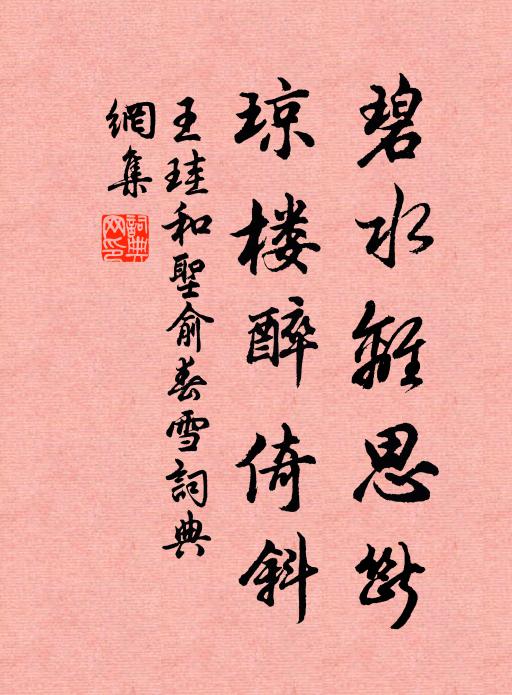 碧水離思斷
琼楼醉倚斜
王珪和聖俞春雪詞典
網集
詞典
网印